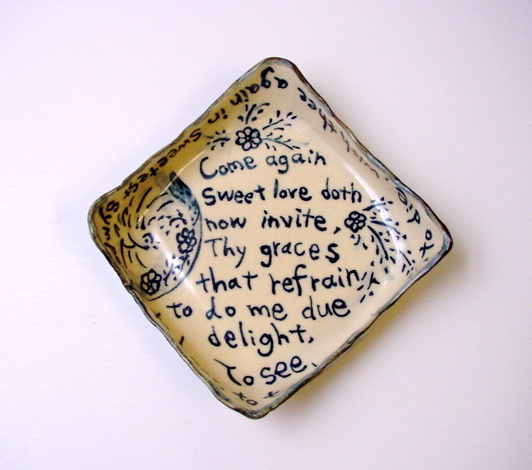 Come again
Sweet love doth
now invite,
Thy graces
that refrain,
to do me due
delight,
To see,
thee again in Sweetest Sym